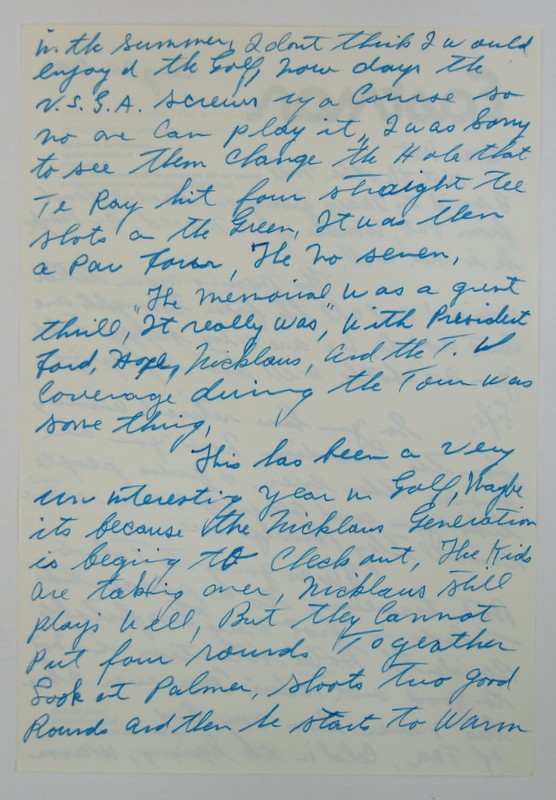 in the summer, I dont think I would
enjoyd the Golf, now days the
U.S.G.A. screws up a Course so
no one can play it, I was sorry
to see them change the Hole that
Te Ray hit four straight tee
shots on the Green, It was then
a Par Four, The No seven,
"The Memorial" was a great
thrill, "It really was", with President
Ford, Hope, Nicklaus, and the T.V
Coverage during the Tour was
some thing,
This has been a very
un interesting year in Golf, Maybe
its because the Nicklaus Generation
is beging to Check out, The Kids
are taking over, Nicklaus still
plays well, But they Cannot
Put four rounds Togeather
Look at Palmer, shoots two good
Rounds and then he starts to Warm